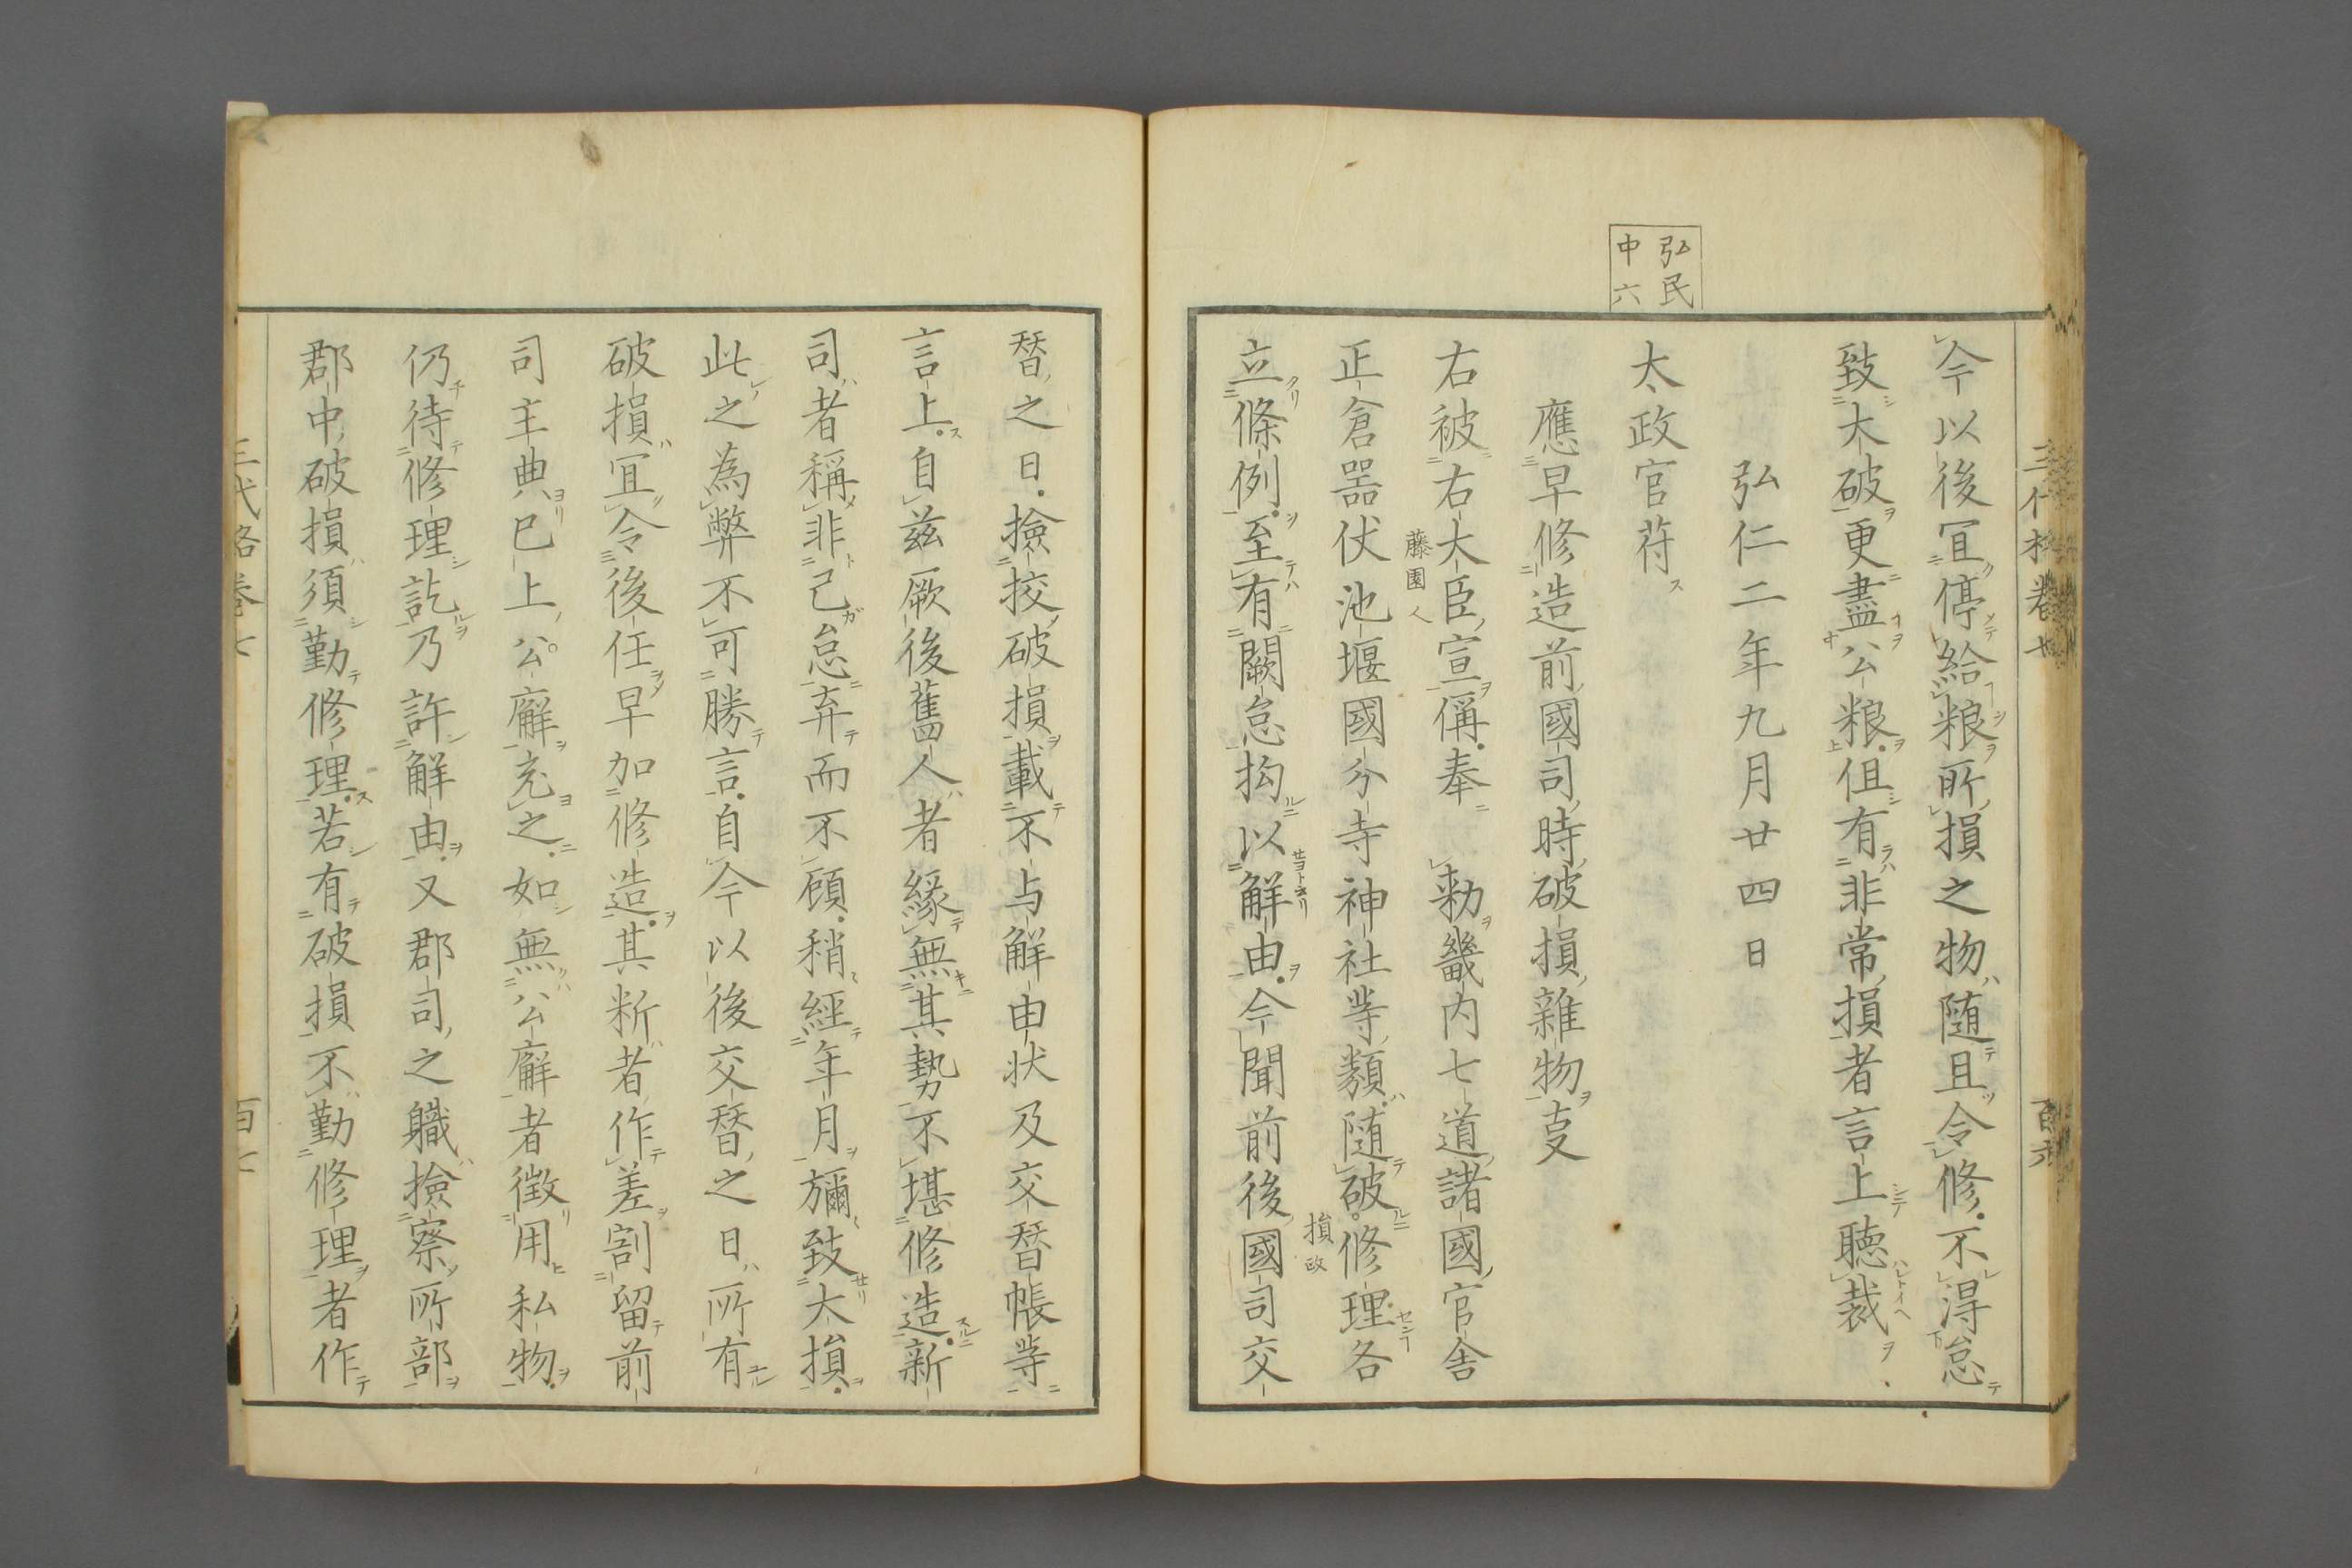 弘民
中六
今以後冝停給粮所損之物随且令修不得怠
致大破更盡公粮但有非常損者言上聴裁
弘仁二年九月廿四日
太政官苻
應早修造前國司時破損雜物叓
右被右大臣宣偁奉　勅畿内七道諸國官舎
藤園人
正倉噐仗池堰國分寺神社䓁類随破修理各
損政
立條例至有闕怠拘以解由今聞前後國司交
替之日撿挍破損載不与解由状及交替帳䓁
言上自兹厥後舊人者緣無其勢不堪修造新
司者稱非己怠弃而不顧稍經年月彌致大損
此之為弊不可勝言自今以後交替之日所有
破損冝令後任早加修造其析者作差割留前
司主典已上公廨充之如無公廨者徴用私物
仍待修理訖乃許解由又郡司之職撿察所部
郡中破損須勤修理若有破損不勤修理者作
三代格巻七
百七